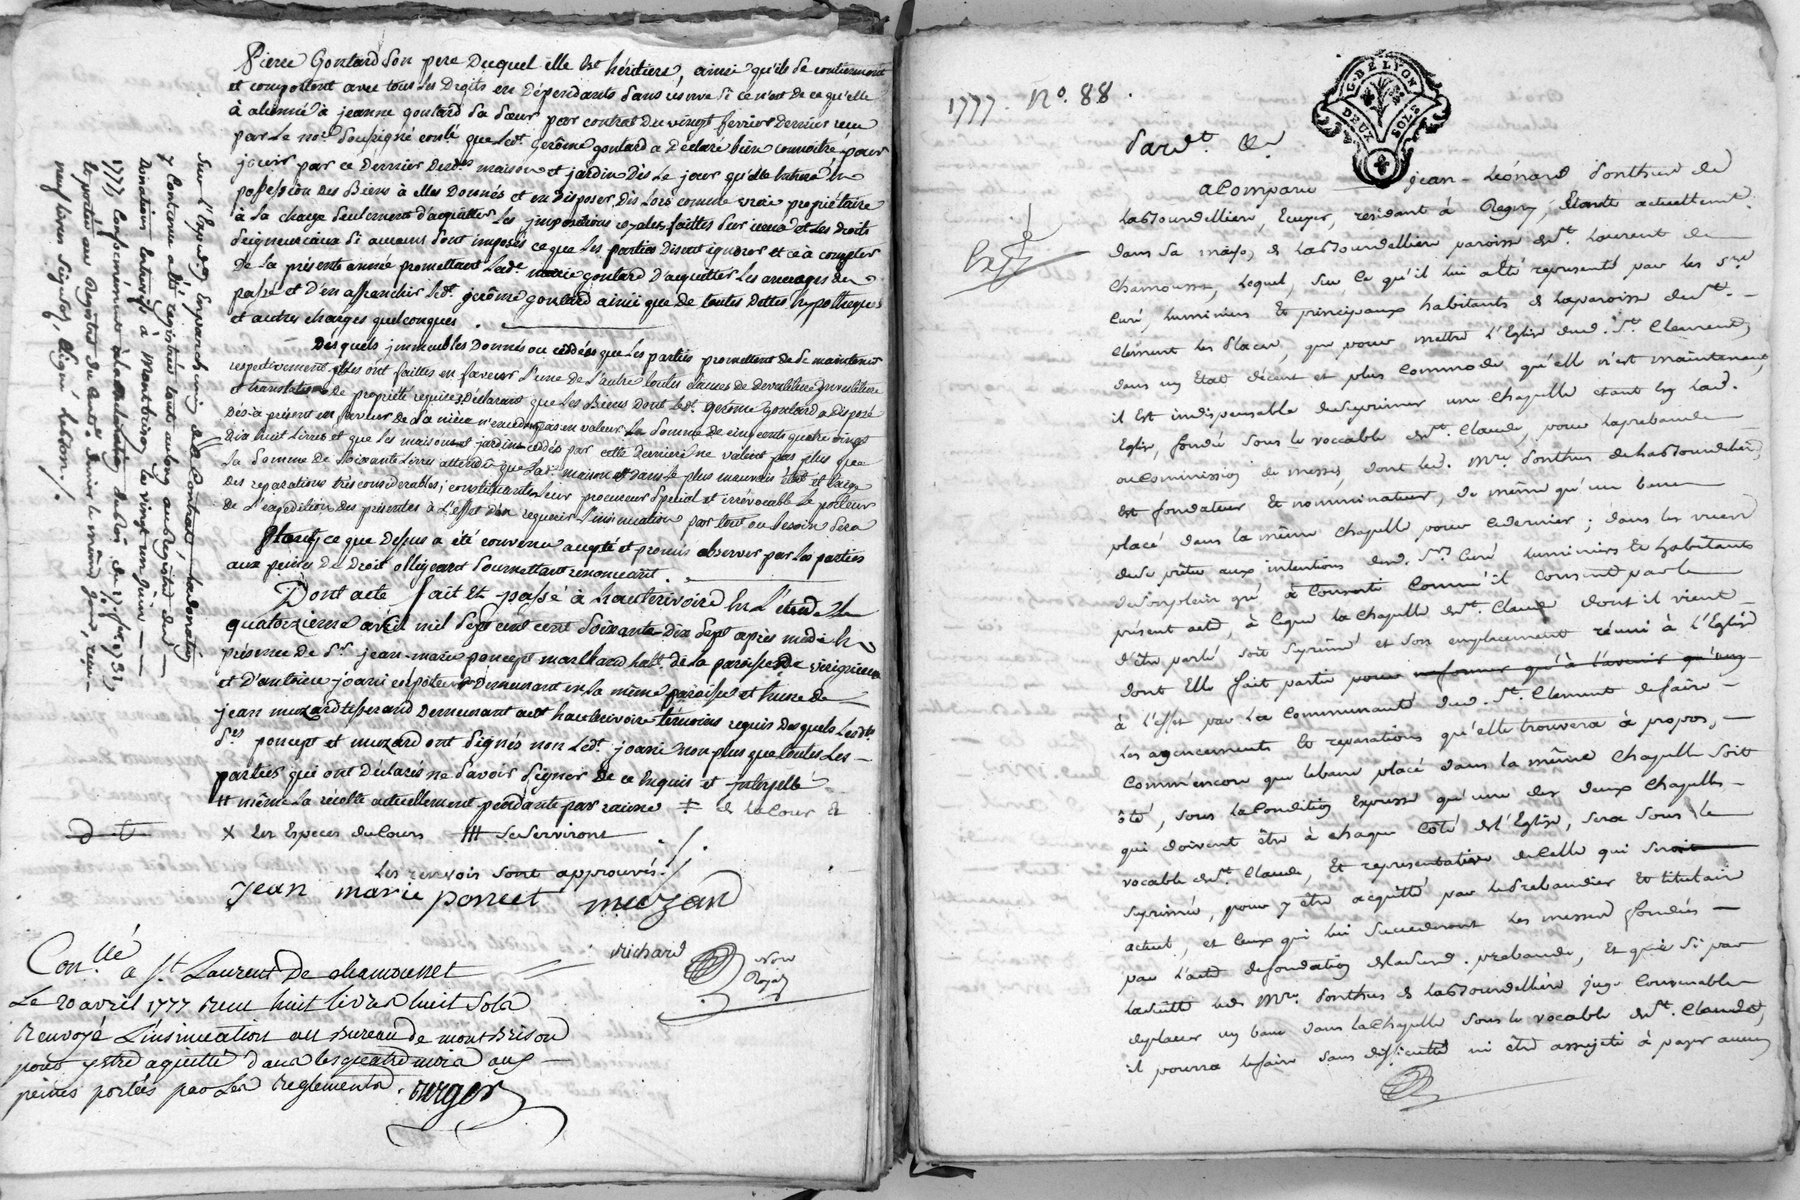 Pierre Goutard son pere Duquel elle est héritiere, ainsi qu'ils se contiennent
et comportent avec tous les Droits en Dépendants sans réserve si ce n'est de ce qu'elle
à alienné à jeanne goutard sa sœur par contrat du vingt fevrier dernier reçu
par le nore soussigné conlé que ledt gerôme goutard a Déclaré bien connoitre pour
jouir par ce dernier desdes maison et jardin Dès le jour qu'elle entrera en
possession des Biens à elles Donnés et en disposer dès lors comme vraie propriétaire
à la charge seulement d'acquitter les impositions royales faittes sur iceux et les droits
seigneuriaux si aucuns sont imposés ce que les parties disent ignorer et ce à compter
De la présente année promettant lade marie goutard d'acquitter les arrerages du
passé et d'en affranchir ledt gerôme goutard ainsi que de toutes dettes hypotheques
et autres charges quelconques.
Desquels immeubles Donnés ou cédées que les parties promettent de se maintenir
respectivement, elles ont faittes en faveur l'une de l'autre toutes clauses de Devestiture Investiture
et translation de propriété requises Déclarant que les Biens dont ledt gerôme goutard a disposé
Dès-à présent en faveur de sa nièce n'excedent pas en valeur la somme de cinq cents quatre vingt
Dix huit livres et que les maison et jardin cédés par cette derniere ne valent pas plus que
la somme de soixante livres attendu que lade maison est dans le plus mauvais état et exige
des reparations très considerables; constituants leur procureur spécial et irrévocable le porteur
de l'expédition des présentes à l'effet d'en requerir l'insinuation par tout ou besoin sera
Tout ce que dessus a été convenu accepté et promis observer par les parties
aux peines de Droit obligeant soumettant renonceant.
Dont acte fait et passé à hauterivoire en l'étude le
quatorzieme avril mil sept cent soixante dix sept après midi en
présence de sr jean-marie poncept marchand hatt de la paroisse de virignieux
et d'antoine joanin demeurant en la même paroisse et encore de
jean muzard tisserand demeurant audt hauterivoire témoins requis desquels lesdts
srs poncept et muzard ont signés non ledt joanin non plus que toutes les
parties qui ont déclarés ne savoir signer de ce enquis et interpellé
# même la récolte actuellement pendante par racine ‡ de la cour et
X les especes du cours ### se serviront
les renvois sont approuvés
jean marie poncet muzard
Richard Nore Royal
Con.llé a St. Laurens de chamousset
Le 20 avril 1777 reçu huit livres huit sols
Renvoyé l'insinuation au Bureau de montbrison
pour y etre aquitté dans les quatre mois aux
peines portées par les Reglements. Berger
Sur l'expedon en parchemin du Contrat, la donation
y Contenue a été registrée tout au long au Registre des
donations entrevifs à Montbrison, le vingt un juin
1777, Conformément à la déclaration du Roi du 17 fer 1731,
neuf livres signé
1777. No. 88.
G. DE LYON
DEUX SOLS
Pardt &a
a Comparu Jean-Léonard Ponthus de
LaBourdelliere, Ecuyer, résidant à Regny, étant actuellement
dans sa maison de LaBourdelliere paroisse de St. Laurent de
Chamousset, lequel, sur ce qu'il lui a été representé par les srs
Curé, luminiers et principaux habitants de la paroisse de St.
Clément les places, que pour mettre l'Eglise dud. St Clement,
dans un Etat décent et plus commode qu'elle n'est maintenant,
il est indispensable de suprimer une chapelle etant en lad.
Eglise, fondée sous le vocable de St. Claude, pour la prebande
ou commission de messes, dont led. Mre Ponthus de LaBourdelliere
est fondateur et nominateur, de même qu'un banc
placé dans la même chapelle pour ce dernier; dans les vues
de se prêter aux intentions desd. Srs Curé luminiers et habitants
de son plein gré à consenti comme il consent par le
présent acte, à ce que la chapelle de St. Claude dont il vient
d'être parlé soit suprimé et son emplacement réuni à l'Eglise
dont elle fait partie pour
à l'effet par la communauté dud. St. Clement de faire
les agencements et reparations qu'elle trouvera à propos,
Comm'encore que le banc placé dans la même chapelle soit
ôté, sous la condition expresse qu'une des deux chapelles
qui doivent être à chaque côté de l'Eglise, sera sous le
vocable de St. Claude, et representative de celle qui
suprimée, pour y être acquitté par le Prebandier et titulaire
actuel, et ceux qui lui succederont les messes fondées
par l'acte de fondation de lad. prebande, et que si par
la suitte led. Mre. Ponthus de LaBourdelliere juge convenable
de placer un banc dans la chapelle sous le vocable de St. Claude,
il pourra le faire sans difficulté ni être assujeti à payer aucun